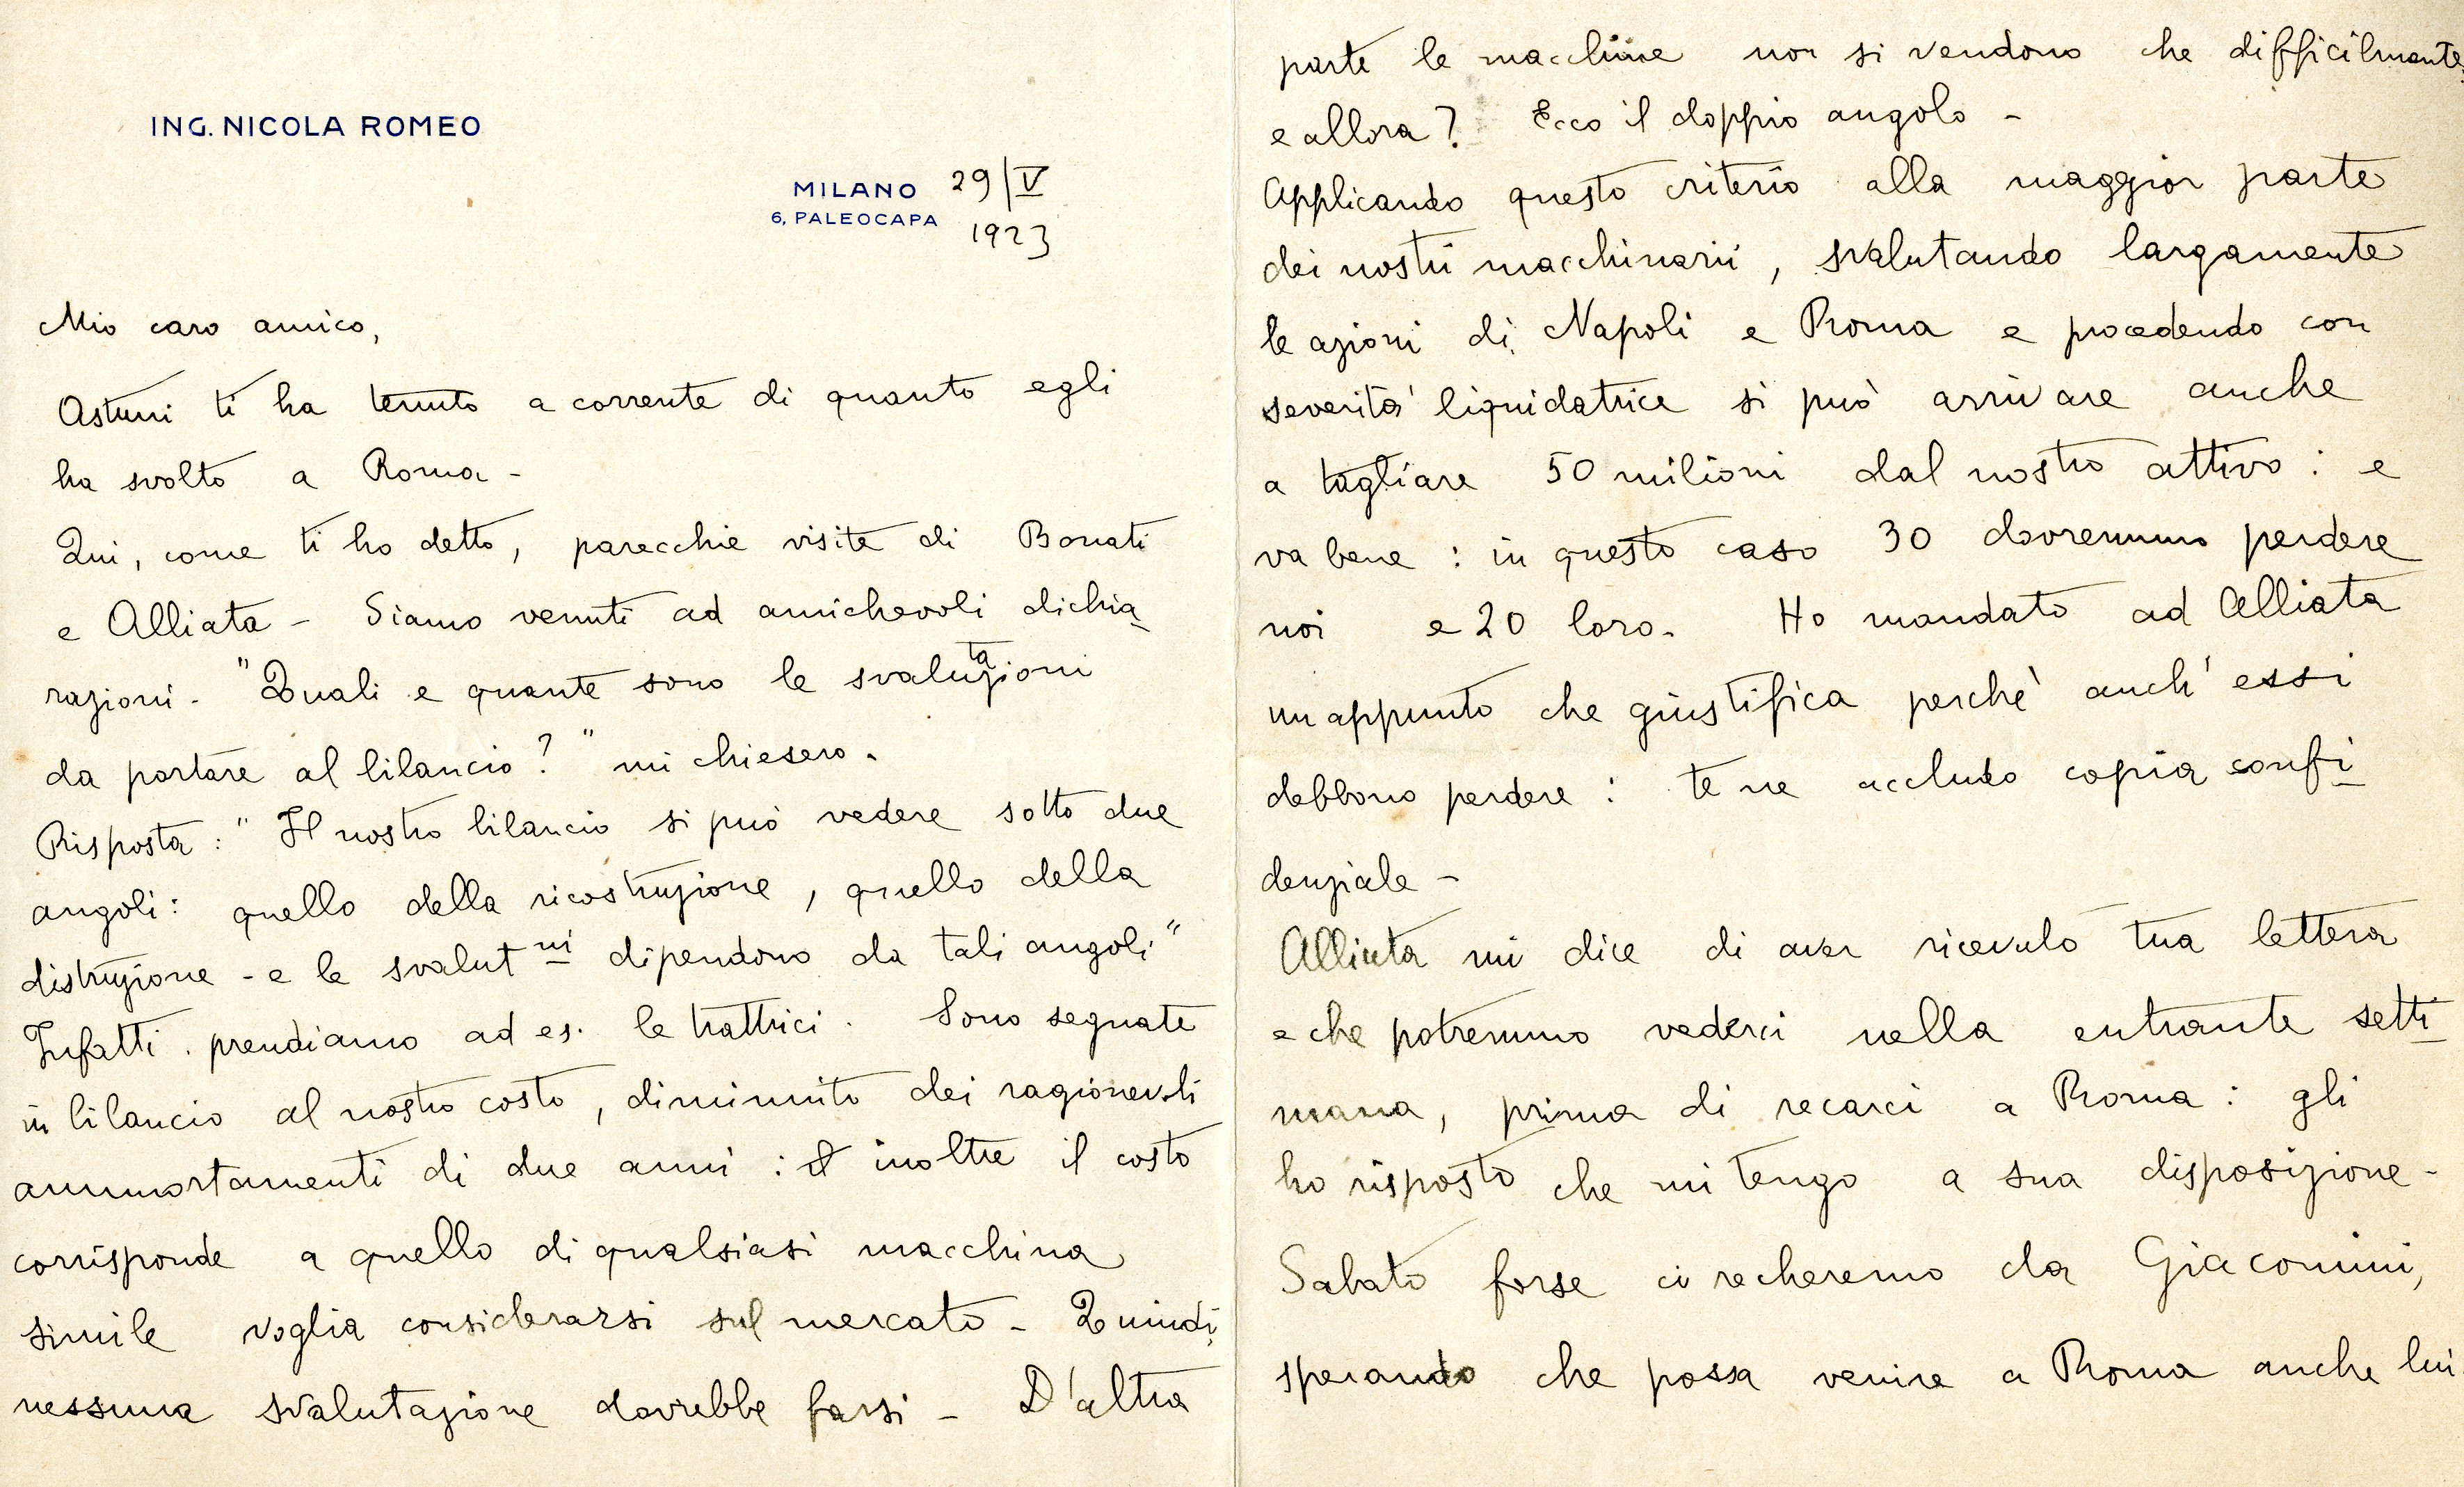 ING. NICOLA ROMEO
MILANO 29/V
6, PALEOCAPA 1923
Mio caro amico,
Astuni ti ha tenuto a corrente di quanto egli
ha svolto a Roma -
Qui, come ti ho detto, parecchie visite di Bonati
e Alliata - Siamo venuti ad amichevoli dichia
razioni. "Quali e quante sono le svalutazioni
da portare al bilancio?" mi chiesero.
Risposta: "Il nostro bilancio si può vedere sotto due
angoli: quello della ricostruzione, quello della
distruzione - e le svalut ni dipendono da tali angoli"
Infatti. prendiamo ad es. le trattrici. Sono segnate
in bilancio al nostro costo, diminuito dei ragionevoli
ammortamenti di due anni: inoltre il costo
corrisponde a quello di qualsiasi macchina
simile voglia considerarsi sul mercato - Quindi
nessuna svalutazione dovrebbe farsi - D'altra
parte le macchine non si vendono che difficilmente:
e allora? Ecco il doppio angolo -
Applicando questo criterio alla maggior parte
dei nostri macchinarii, svalutando largamente
le azioni di Napoli e Roma e procedendo con
severità liquidatrice si può arrivare anche
a tagliare 50 milioni dal nostro attivo: e
va bene: in questo caso 30 dovremmo perdere
noi e 20 loro. Ho mandato ad Alliata
un appunto che giustifica perchè anch'essi
debbono perdere: te ne accludo copia confi
denziale -
Alliata mi dice di aver ricevuto tua lettera
e che potremmo vederci nella entrante setti
mana, prima di recarci a Roma: gli
ho risposto che mi tengo a sua disposizione -
Sabato forse ci recheremo da Giacomini,
sperando che possa venire a Roma anche lui